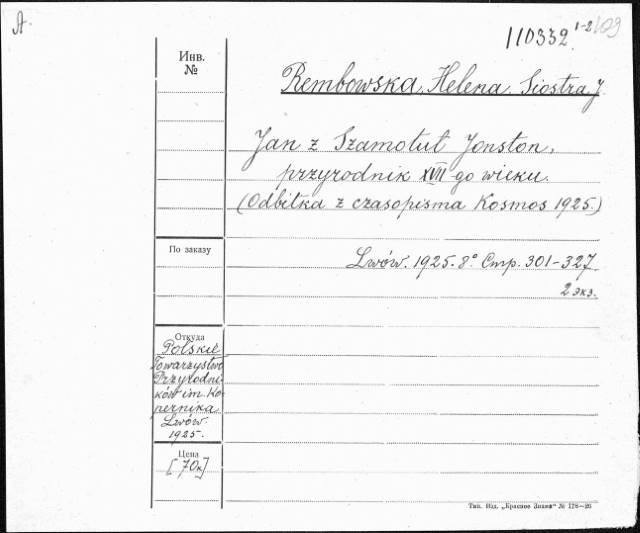 A.
110332 1-2
Инв.
№
Rembowska, Helena. Siostra J.
Jan z Szamotuł Jonston,
przyrodnik XVII-go wieku.
(Odbitka z czasopisma Kosmos 1925.)
По заказу
Lwów. 1925. 8° Стр. 301-327
2 экз.
Откуда
Polskie
Towarzystwo
Przyrodni-
ków im. Ko-
pernika
Lwów.
1925.
Цена
[70к]
Тип. Изд. „Красное Знамя" № 178—26